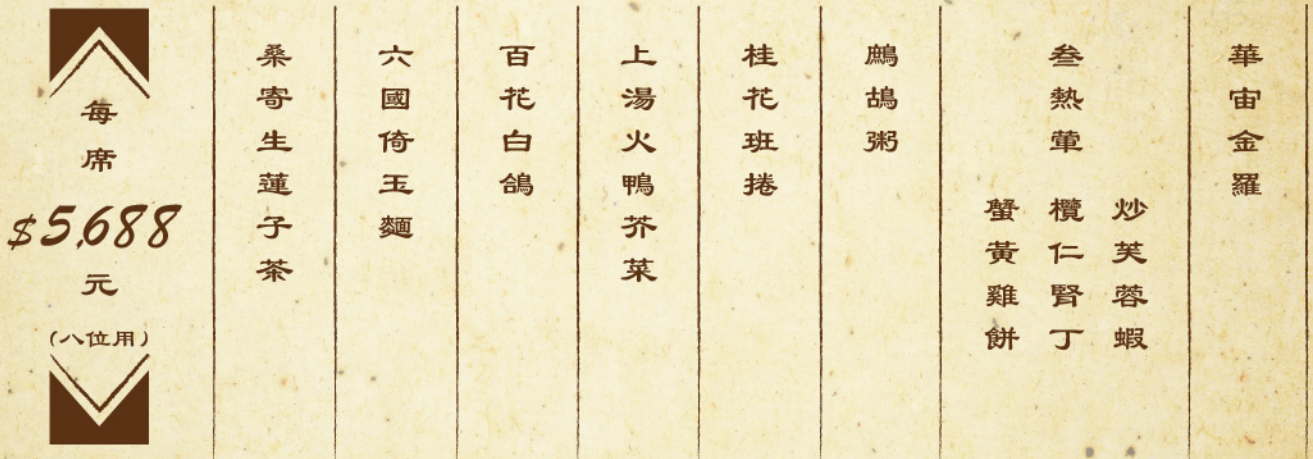 華宙金羅
叁熱葷
炒芙蓉蝦
欖仁腎丁
蟹黃雞餅
鷓鴣粥
桂花班捲
上湯火鴨芥菜
百花白鴿
六國倚玉麵
桑寄生蓮子茶
每席
$5,688
元
(八位用)